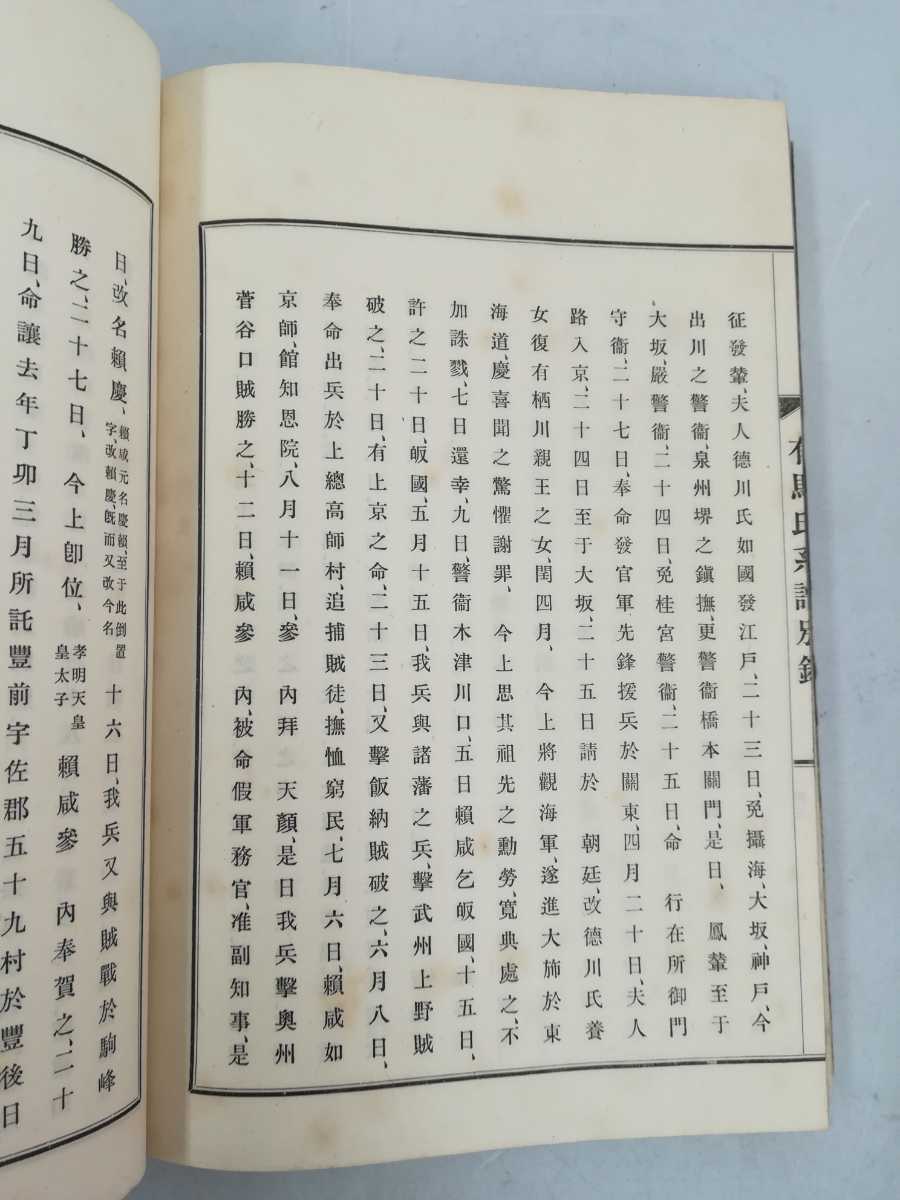 有馬氏系譜別錄
征發輦、夫人德川氏如國發江戶、二十三日、免攝海、大坂、神戶、今
出川之警衞、泉州堺之鎭撫、更警衞橋本關門、是日、鳳輦至于
大坂、嚴警衞、二十四日、免桂宮警衞、二十五日、命行在所御門
守衞、二十七日、奉命發官軍先鋒援兵於關東、四月二十日、夫人
路入京、二十四日至于大坂、二十五日請於朝廷、改德川氏養
女復有栖川親王之女、閏四月、今上將觀海軍、遂進大斾於東
海道、慶喜聞之驚懼謝罪、今上思其祖先之勳勞、寬典處之、不
加誅戮、七日還幸、九日、警衞木津川口、五日賴咸乞皈國、十五日、
許之二十日、皈國、五月十五日、我兵與諸藩之兵、擊武州上野賊
破之、二十日、有上京之命、二十三日、又擊飯納賊破之、六月八日、
奉命出兵於上總高師村、追捕賊徒、撫恤窮民、七月六日、賴咸如
京師、館知恩院、八月十一日、參內拜天顏、是日我兵擊奧州
菅谷口賊勝之、十二日、賴咸參內、被命假軍務官、准副知事、是
日、改名賴慶、賴咸元名慶賴、至于此倒置字改賴慶、既而又改今名十六日、我兵又與賊戰於駒峰
勝之、二十七日、今上卽位、孝明天皇皇太子賴咸參內奉賀之、二十
九日、命讓去年丁卯三月所託豐前宇佐郡五十九村於豐後日